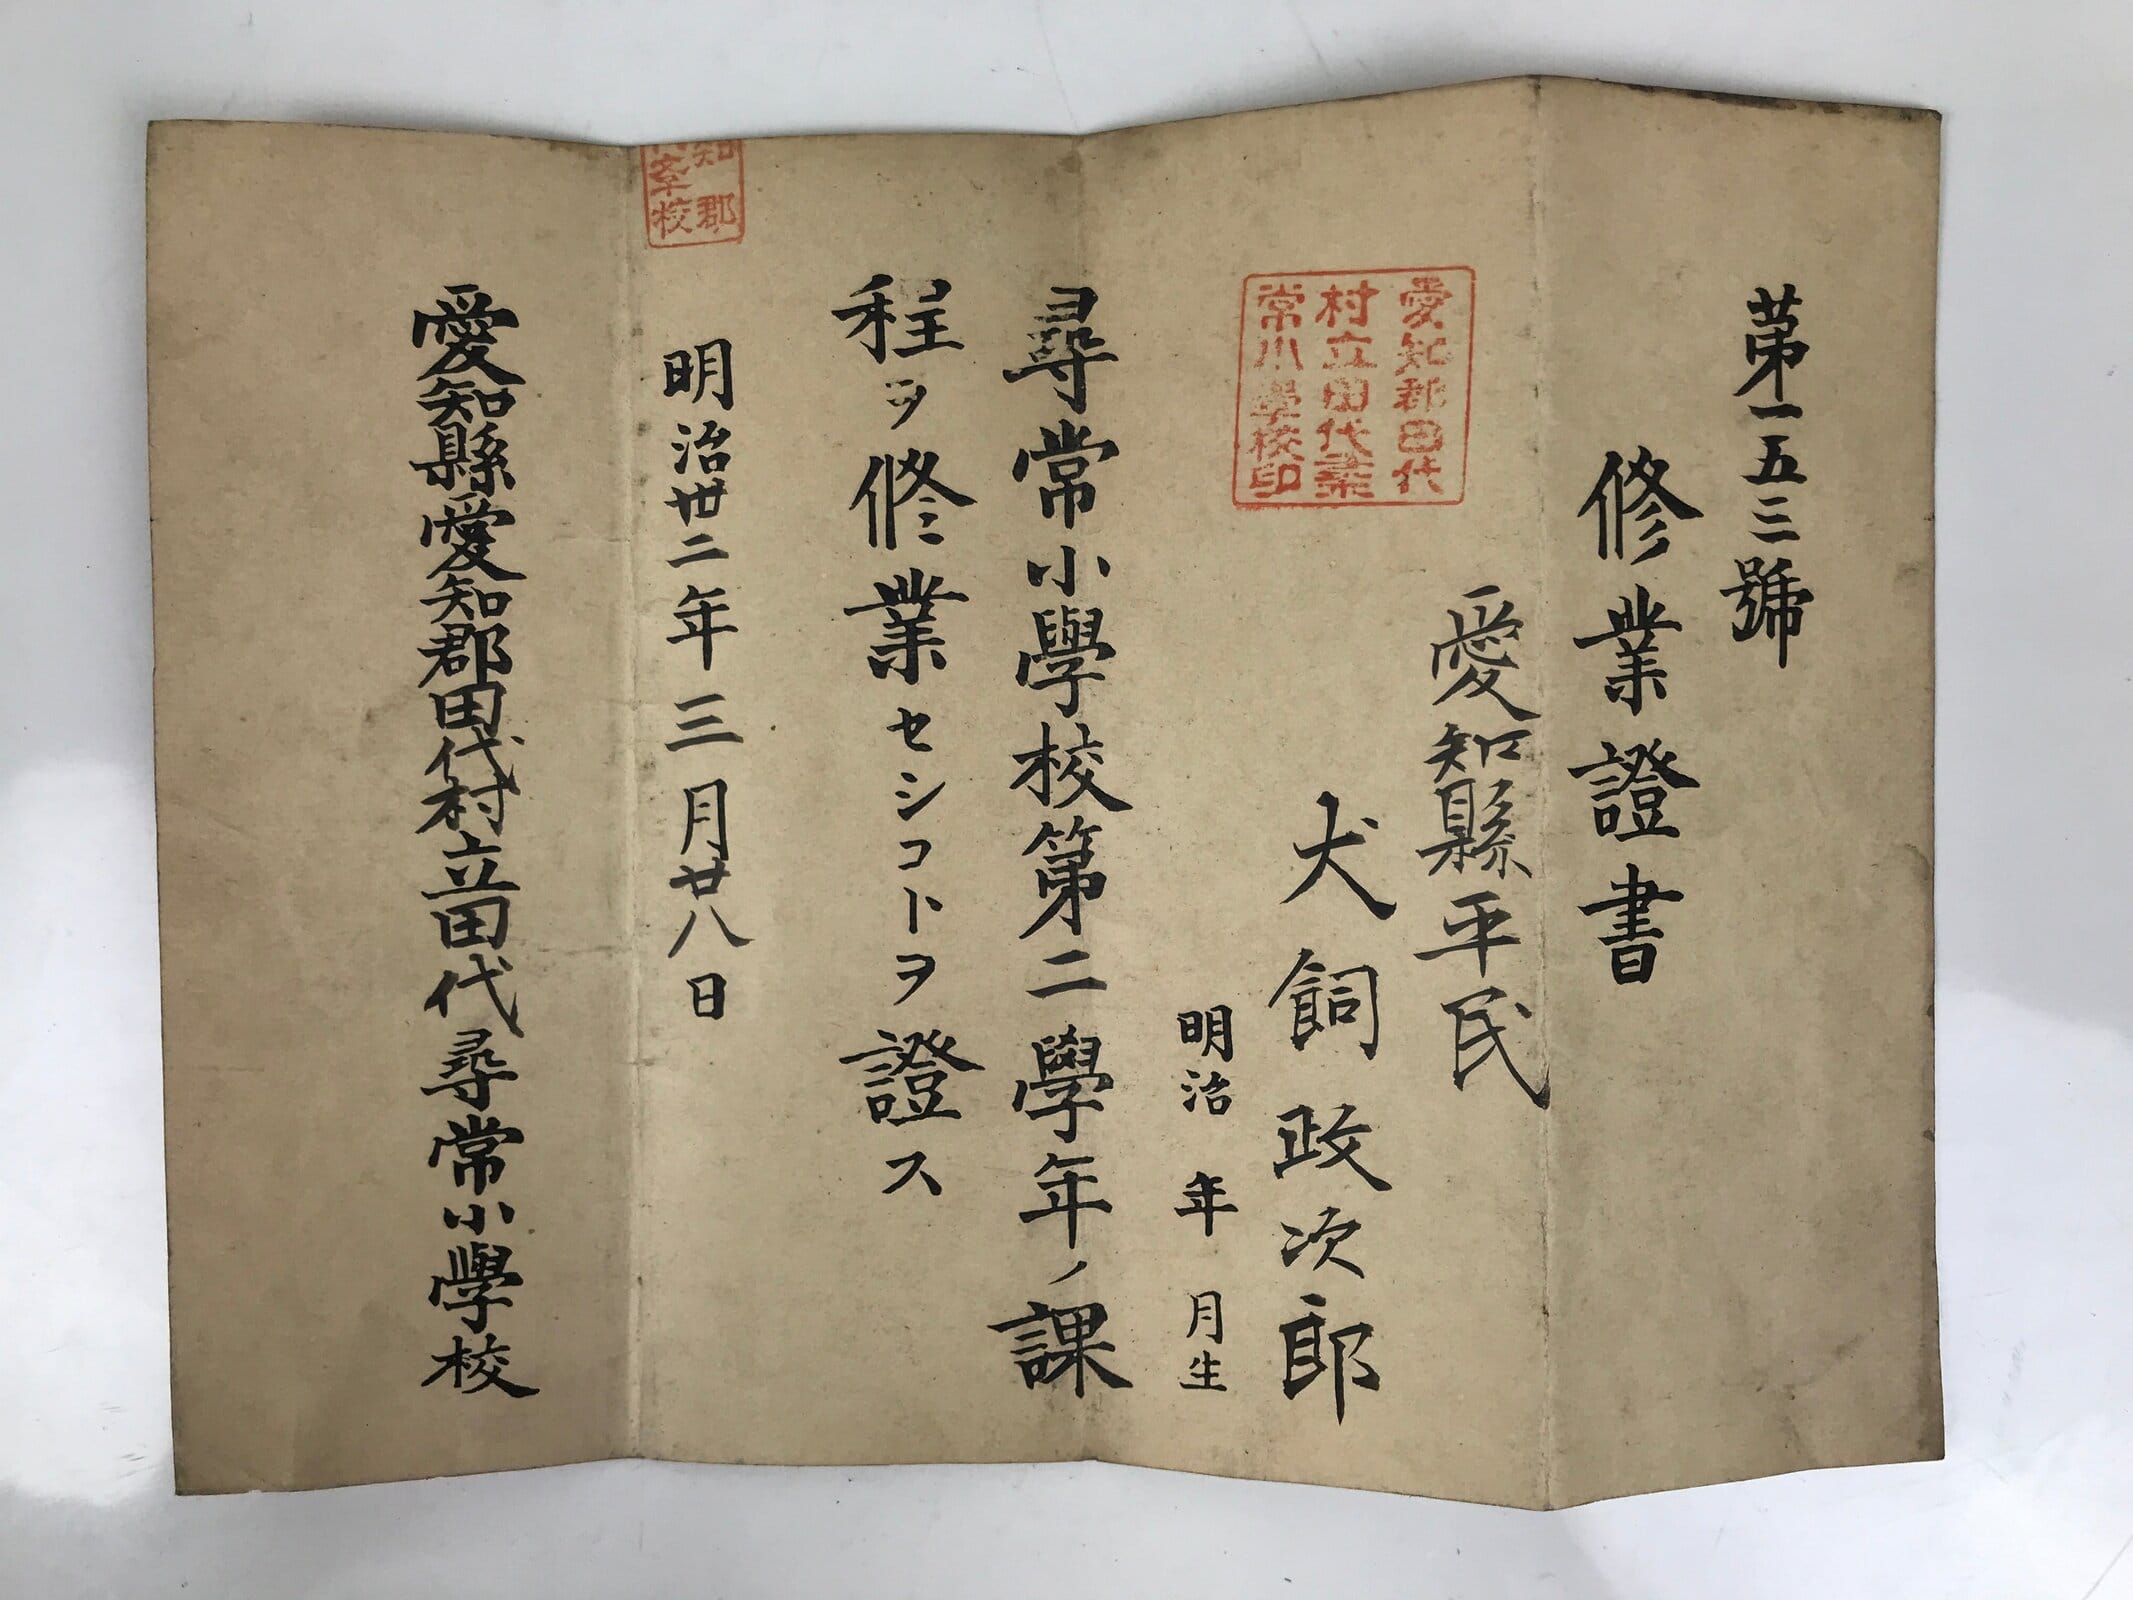 第一五三號
修業證書
愛知縣平民
犬飼政次郎
明治　年　月生
愛知郡田代
村立田代尋
常小學校印
尋常小學校第二學年ノ課
程ヲ修業セシコトヲ證ス
明治卅二年三月廿八日
知郡
學校
愛知縣愛知郡田代村立田代尋常小學校